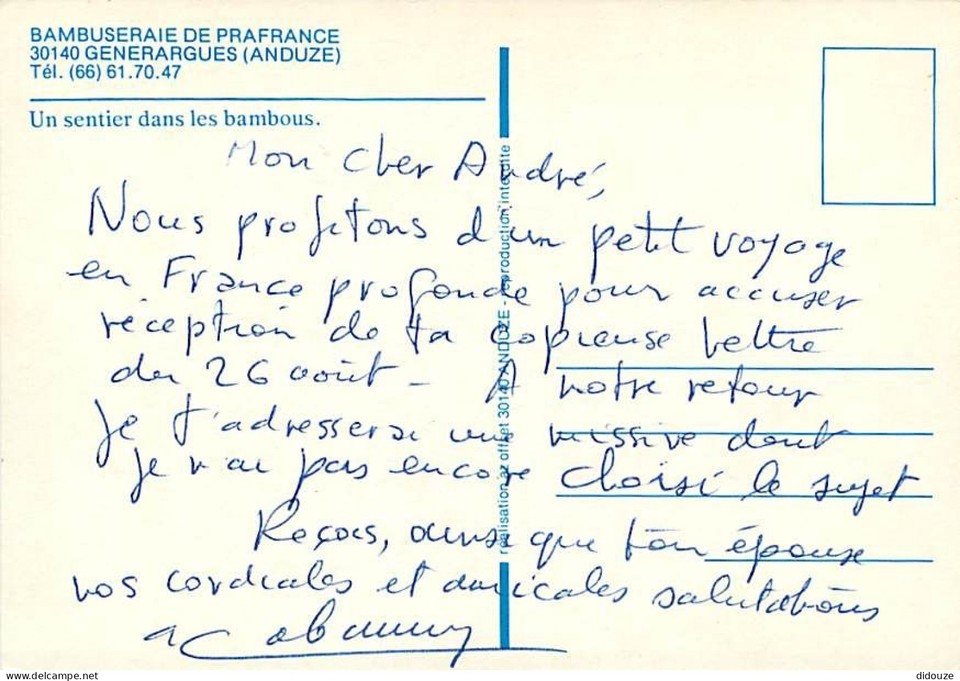 BAMBUSERAIE DE PRAFRANCE
30140 GENERARGUES (ANDUZE)
Tél. (66) 61.70.47
Un sentier dans les bambous.
Mon cher André,
Nous profitons d'un petit voyage
en France profonde pour accuser
réception de ta copieuse lettre
du 26 août - A notre retour
je t'adresserai une missive dont
je n'ai pas encore choisi le sujet
Reçois, ainsi que ton épouse
nos cordiales et amicales salutations
réalisation az offset 30140 ANDUZE - reproduction interdite
delcampe.net
didouze